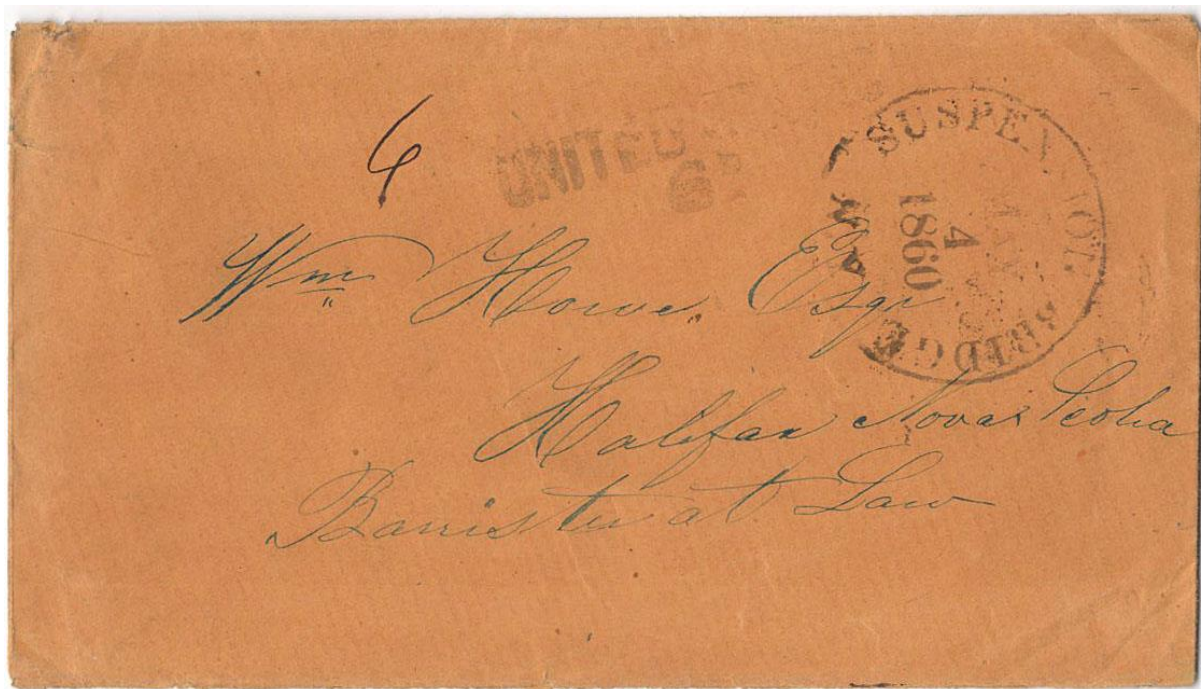 6
SUSPENSION BRIDGE
4
1860
Wm Howe, Esqr
Halifax Nova Scotia
Barrister at Law